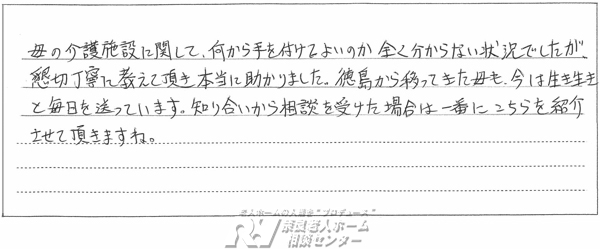 母の介護施設に関して、何から手を付けるよいのか全く分からない状況でしたが、
懇切丁寧に教えて頂き本当に助かりました。徳島から移ってきた母も、今は生き生き
と毎日を送っています。知り合いから相談を受けた場合は一番にこちらを紹介
させて頂きますね。
老人ホームの入居を"プロデュース"
奈良老人ホーム
相談センター